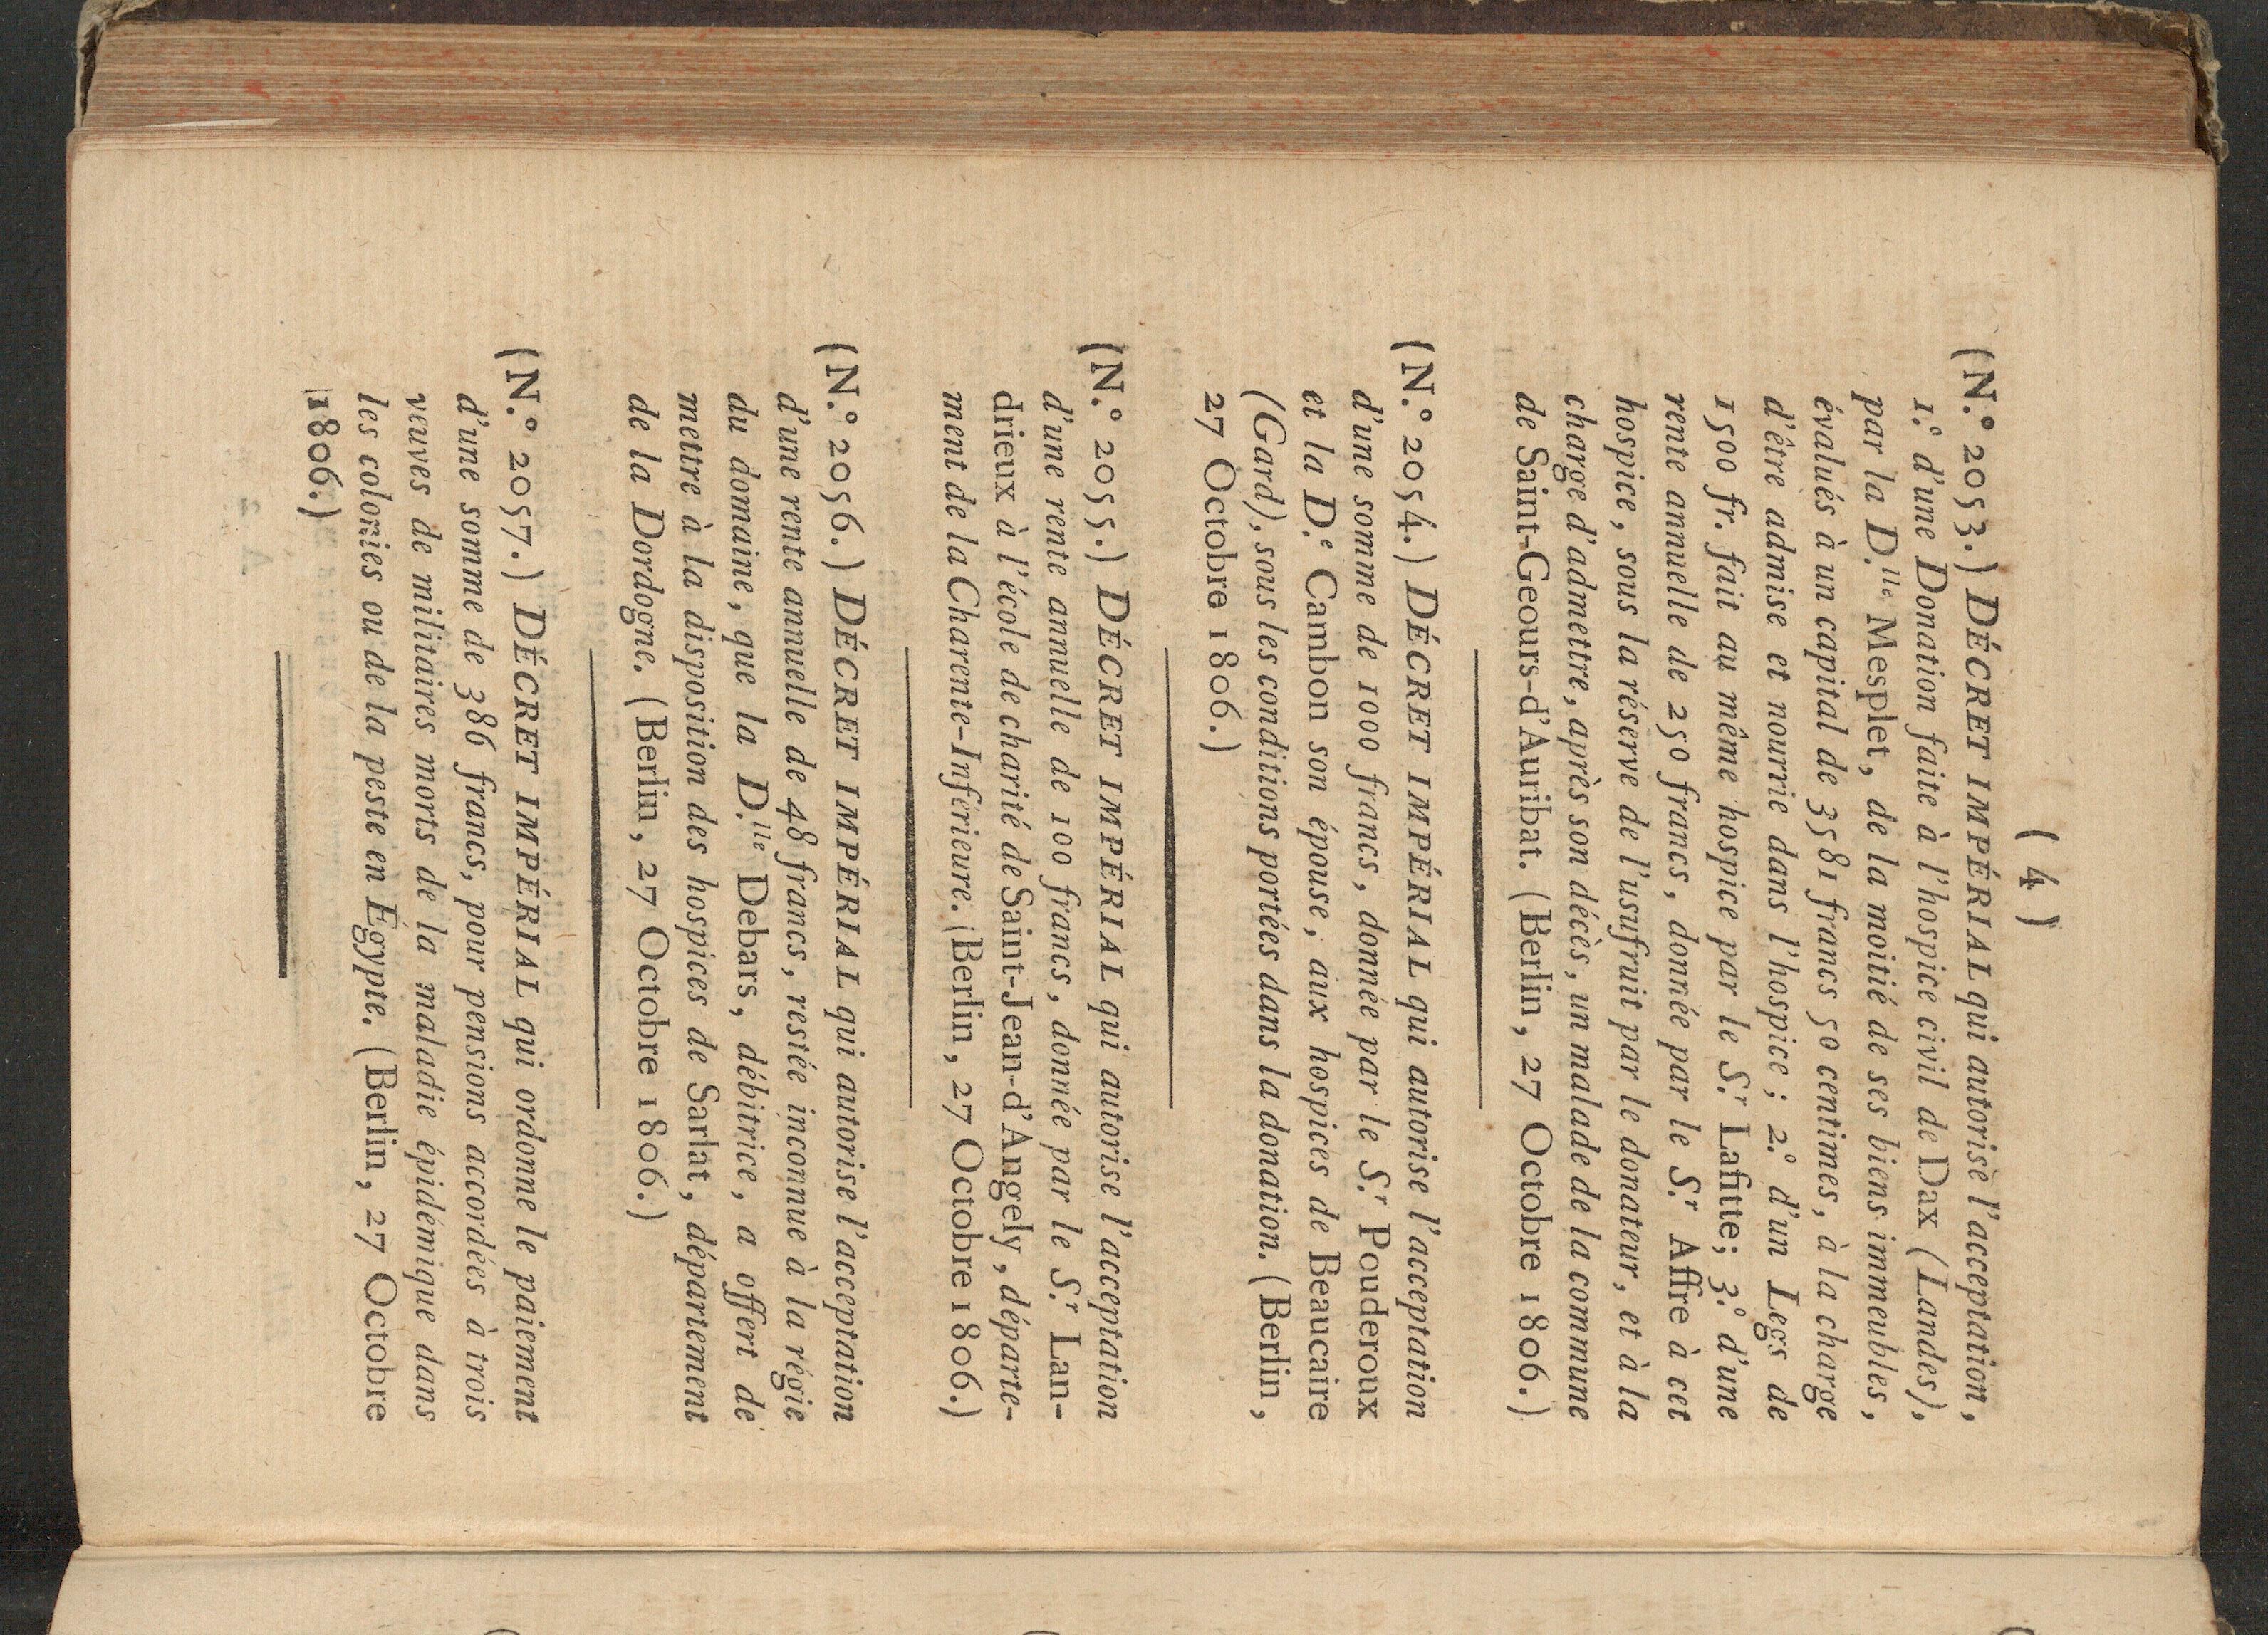 ( 4 )
(N.° 2053.) DÉCRET IMPÉRIAL qui autorise l'acceptation,
1.° d'une Donation faite à l'hospice civil de Dax (Landes),
par la D.lle Mesplet, de la moitié de ses biens immeubles,
évalués à un capital de 3581 francs 50 centimes, à la charge
d'être admise et nourrie dans l'hospice; 2.° d'un Legs de
1500 fr. fait au même hospice par le S.r Lafitte; 3.° d'une
rente annuelle de 250 francs, donnée par le S.r Affre à cet
hospice, sous la réserve de l'usufruit par le donateur, et à la
charge d'admettre, après son décès, un malade de la commune
de Saint-Geours-d'Auribat. (Berlin, 27 Octobre 1806.)
(N.° 2054.) DÉCRET IMPÉRIAL qui autorise l'acceptation
d'une somme de 1000 francs, donnée par le S.r Pouderoux
et la D.e Cambon son épouse, aux hospices de Beaucaire
(Gard), sous les conditions portées dans la donation. (Berlin,
27 Octobre 1806.)
(N.° 2055.) DÉCRET IMPÉRIAL qui autorise l'acceptation
d'une rente annuelle de 100 francs, donnée par le S.r Lan-
drieux à l'école de charité de Saint-Jean-d'Angely, départe-
ment de la Charente-Inférieure. (Berlin, 27 Octobre 1806.)
(N.° 2056.) DÉCRET IMPÉRIAL qui autorise l'acceptation
d'une rente annuelle de 48 francs, restée inconnue à la régie
du domaine, que la D.lle Debars, débitrice, a offert de
mettre à la disposition des hospices de Sarlat, département
de la Dordogne. (Berlin, 27 Octobre 1806.)
(N.° 2057.) DÉCRET IMPÉRIAL qui ordonne le paiement
d'une somme de 386 francs, pour pensions accordées à trois
veuves de militaires morts de la maladie épidémique dans
les colonies ou de la peste en Égypte. (Berlin, 27 Octobre
1806.)